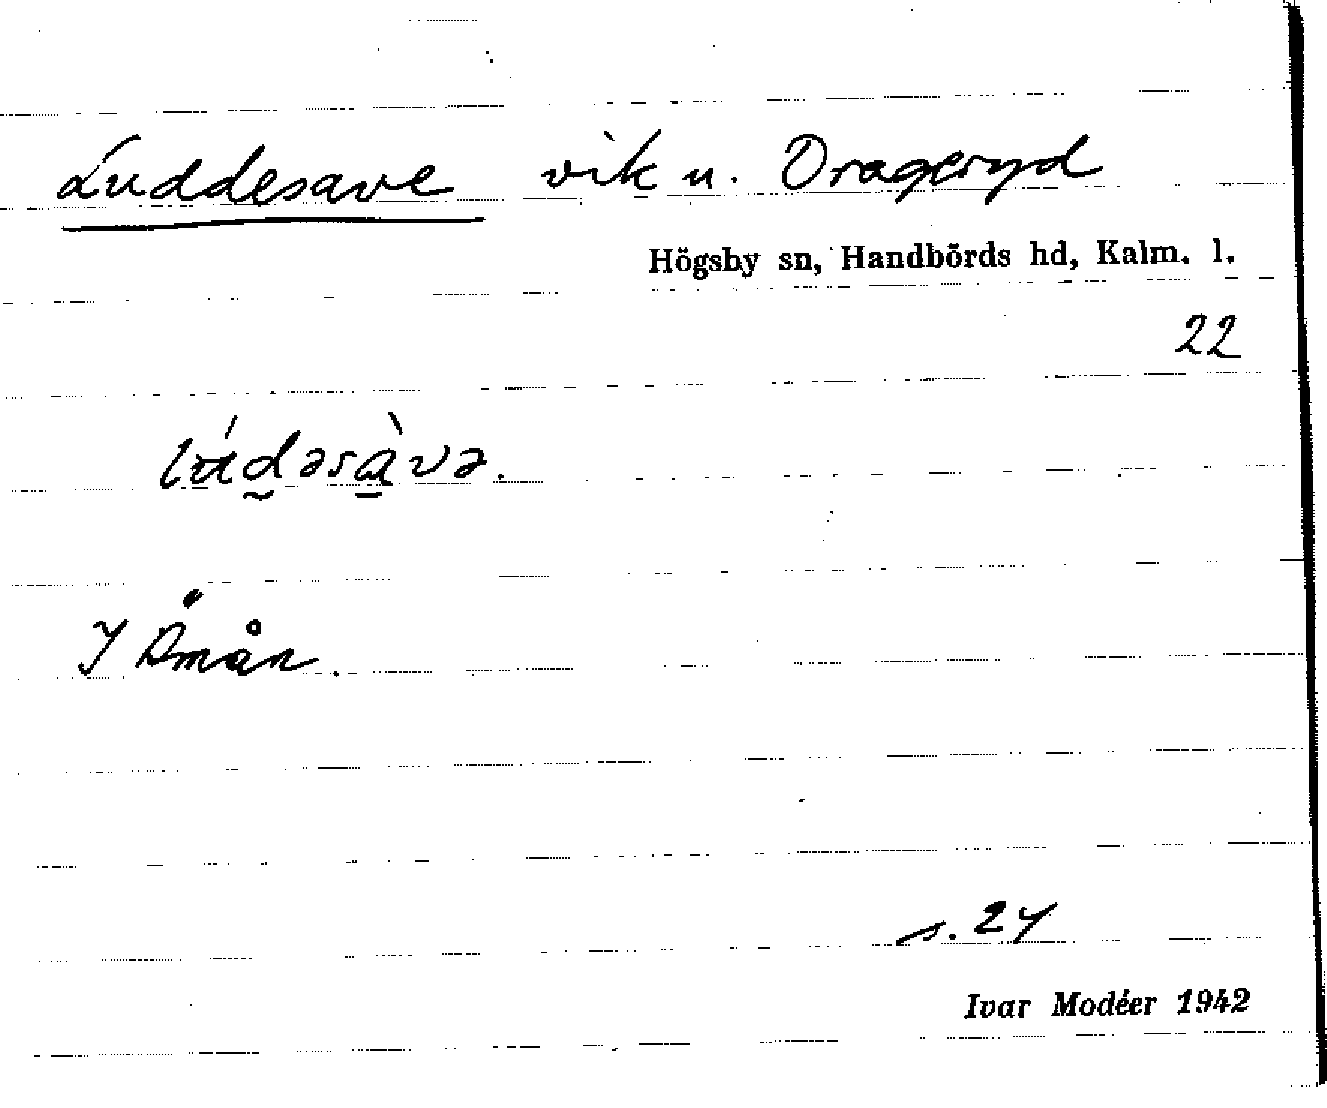 Luddesave vik u. Drageryd
Högsby sn, Handbörds hd, Kalm. l.
22
lúdəsàvə.
I Åmån.
s. 24
Ivar Modéer 1942